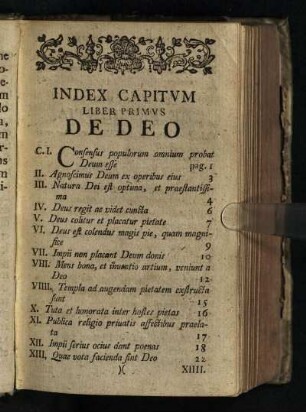 INDEX CAPITVM
LIBER PRIMVS
DE DEO
C. I. Consensus populorum omnium probat
Deum esse pag. 1
II. Agnoscimus Deum ex operibus eius 3
III. Natura Dei est optima, et praestantissi-
ma 4
IV. Deus regit ac videt cuncta 6
V. Deus colitur et placatur pietate 7
VI. Deus est colendus magis pie, quam magni-
fice 9
VII. Impii non placant Deum donis 10
VIII. Mens bona, et inuentio artium, veniunt a
Deo 12
VIIII. Templa ad augendam pietatem exstructa
sunt 15
X. Tuta et honorata inter hostes pietas 16
XI. Publica religio priuatis affectibus praela-
ta 17
XII. Impii serius ocius dant poenas 18
XIII, Quae vota facienda sint Deo 22
)( XIIII.